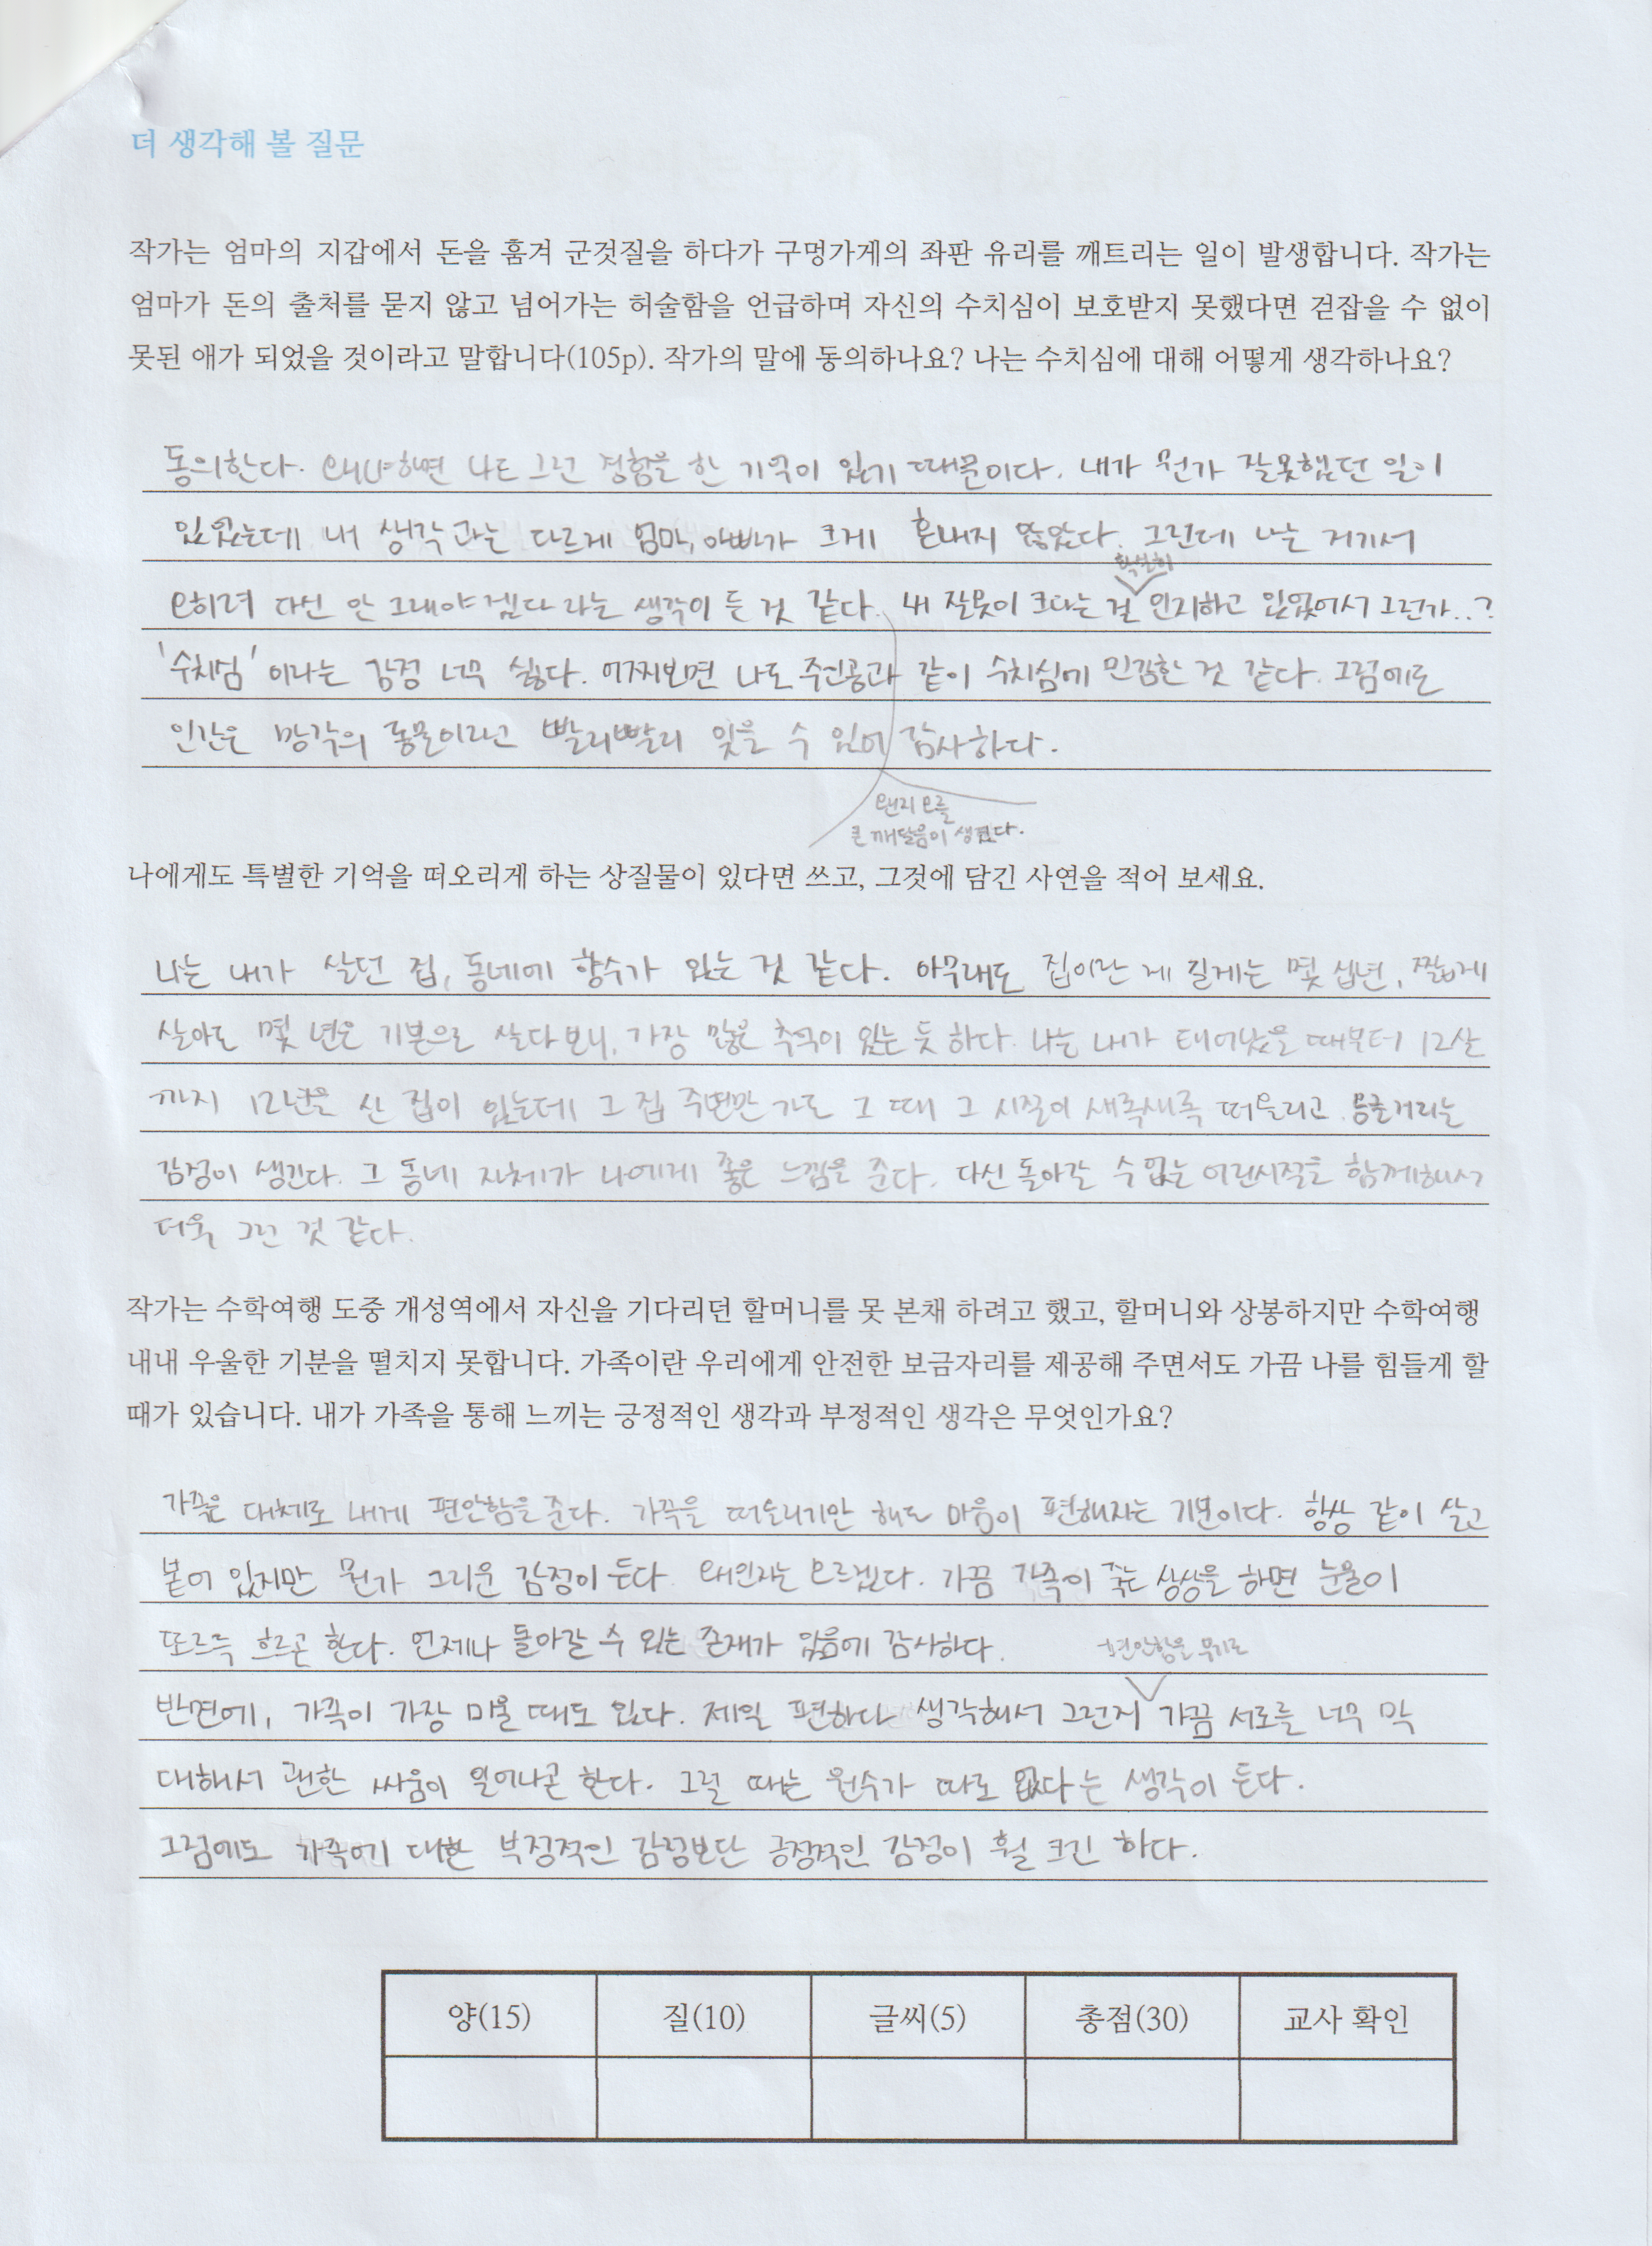 더 생각해 볼 질문
작가는 엄마의 지갑에서 돈을 훔쳐 군것질을 하다가 구멍가게의 좌판 유리를 깨트리는 일이 발생합니다. 작가는
엄마가 돈의 출처를 묻지 않고 넘어가는 허술함을 언급하며 자신의 수치심이 보호받지 못했다면 걷잡을 수 없이
못된 애가 되었을 것이라고 말합니다(105p). 작가의 말에 동의하나요? 나는 수치심에 대해 어떻게 생각하나요?
동의한다. 왜냐하면 나도 그런 경험을 한 기억이 있기 때문이다. 내가 뭔가 잘못했던 일이
있었는데 내 생각과는 다르게 엄마, 아빠가 크게 혼내지 않았다. 그런데 나는 거기서
확실히
오히려 다신 안 그래야겠다 라는 생각이 든 것 같다. 내 잘못이 크다는 걸 인지하고 있었어서 그런가..?
'수치심'이라는 감정 너무 싫다. 어찌보면 나도 주인공과 같이 수치심에 민감한 것 같다. 그럼에도
인간은 망각의 동물이라고 빨리빨리 잊을 수 있어 감사하다.
왠지 모를
큰 깨달음이 생겼다.
나에게도 특별한 기억을 떠오리게 하는 상질물이 있다면 쓰고, 그것에 담긴 사연을 적어 보세요.
나는 내가 살던 집, 동네에 향수가 있는 것 같다. 아무래도 집이란 게 길게는 몇 십년, 짧게
살아도 몇 년은 기본으로 살다보니, 가장 많은 추억이 있는 듯 하다. 나는 내가 태어났을 때부터 12살
까지 12년을 산 집이 있는데 그 집 주변만 가도 그 때 그 시절이 새록새록 떠올리고 몽글거리는
감정이 생긴다. 그 동네 자체가 나에게 좋은 느낌을 준다. 다신 돌아갈 수 없는 어린시절을 함께해서
더욱 그런 것 같다.
작가는 수학여행 도중 개성역에서 자신을 기다리던 할머니를 못 본채 하려고 했고, 할머니와 상봉하지만 수학여행
내내 우울한 기분을 떨치지 못합니다. 가족이란 우리에게 안전한 보금자리를 제공해 주면서도 가끔 나를 힘들게 할
때가 있습니다. 내가 가족을 통해 느끼는 긍정적인 생각과 부정적인 생각은 무엇인가요?
가족은 대체로 내게 편안함을 준다. 가족을 떠올리기만 해도 마음이 편해지는 기분이다. 항상 같이 살고
붙어 있지만 뭔가 그리운 감정이 든다. 왜인지는 모르겠다. 가끔 가족이 죽는 상상을 하면 눈물이
또르륵 흐르곤 한다. 언제나 돌아갈 수 있는 존재가 있음에 감사하다.
편안함을 무기로
반면에, 가족이 가장 미울 때도 있다. 제일 편하다 생각해서 그런지 가끔 서로를 너무 막
대해서 괜한 싸움이 일어나곤 한다. 그럴 때는 원수가 따로 없다는 생각이 든다.
그럼에도 가족에 대한 부정적인 감정보단 긍정적인 감정이 훨 크긴 하다.
양(15) 질(10) 글씨(5) 총점(30) 교사 확인